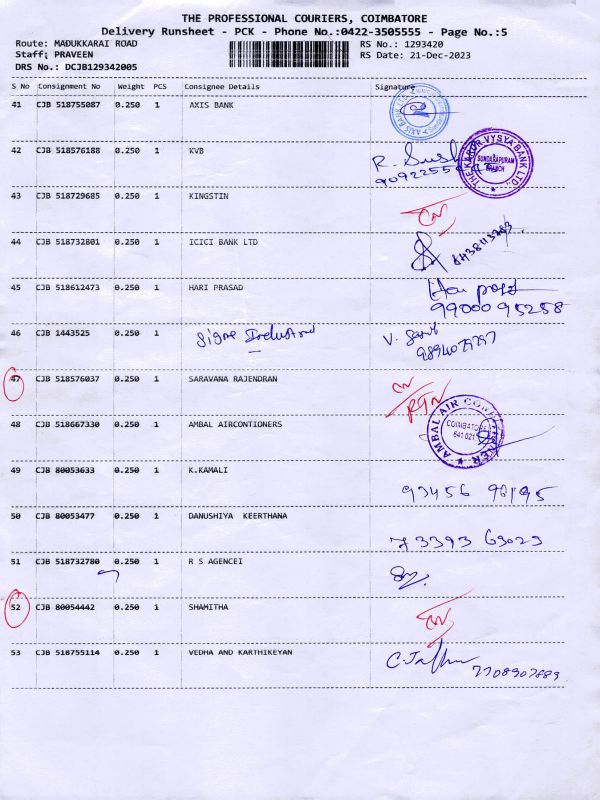 THE PROFESSIONAL COURIERS, COIMBATORE
Delivery Runsheet - PCK - Phone No.:0422-3505555 - Page No.:5
Route: MADUKKARAI ROAD RS No.: 1293420
Staff: PRAVEEN RS Date: 21-Dec-2023
DRS No.: DCJB129342005
S No Consignment No Weight PCS Consignee Details Signature
41 CJB 518755087 0.250 1 AXIS BANK
AXIS BANK LTD
42 CJB 518576188 0.250 1 KVB
THE KARUR VYSYA BANK LTD
SUNDARAPURAM
BRANCH
43 CJB 518729685 0.250 1 KINGSTIN
44 CJB 518732801 0.250 1 ICICI BANK LTD
45 CJB 518612473 0.250 1 HARI PRASAD
9900095258
46 CJB 1443525 0.250 1
47 CJB 518576037 0.250 1 SARAVANA RAJENDRAN
RTN
48 CJB 518667330 0.250 1 AMBAL AIRCONTIONERS
AMBAL AIR CONDITIONER
COIMBATORE
641 021
49 CJB 80053633 0.250 1 K.KAMALI
93456 98195
50 CJB 80053477 0.250 1 DANUSHIYA KEERTHANA
73393 63023
51 CJB 518732780 0.250 1 R S AGENCEI
52 CJB 80054442 0.250 1 SHAMITHA
53 CJB 518755114 0.250 1 VEDHA AND KARTHIKEYAN
7708907889